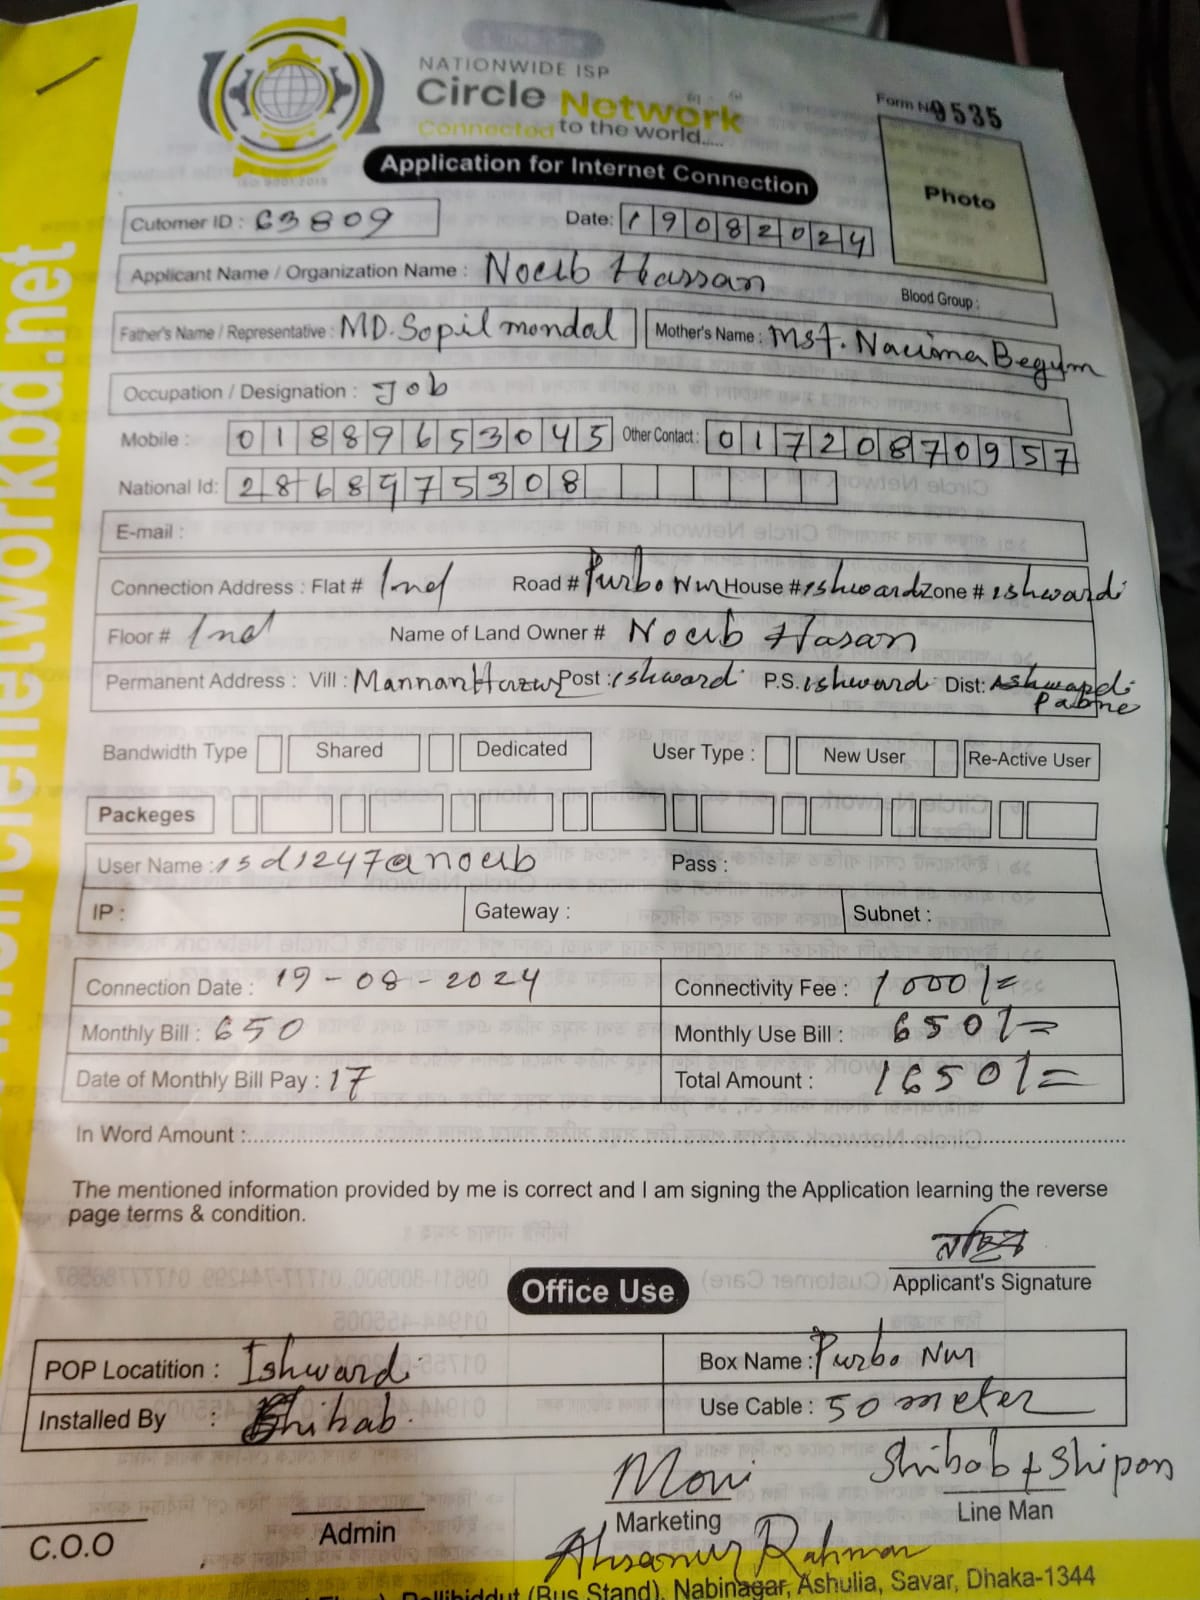 NATIONWIDE ISP
Circle Network
Connected to the world.....
Form No 9535
ISO 9001:2015
Application for Internet Connection
Photo
Cutomer ID : 63809 Date: 19082024
Applicant Name / Organization Name : Nocib Hassan Blood Group :
Father's Name / Representative : MD. Sopil mondal Mother's Name : Mst. Nacima Begym
Occupation / Designation : Job
Mobile : 01889653045 Other Contact : 01720870957
National Id: 2868975308
E-mail :
Connection Address : Flat # Ind Road # Purbo Nur House # ishwardi Zone # ishwardi
Floor # Ind Name of Land Owner # Nocib Hasan
Permanent Address : Vill : Mannan Post : ishwardi P.S. ishwardi Dist: Ashwardi
Pabne
Bandwidth Type Shared Dedicated User Type : New User Re-Active User
Packeges
User Name : isd1247@nocib Pass :
IP : Gateway : Subnet :
Connection Date : 19-08-2024 Connectivity Fee : 1000/=
Monthly Bill : 650 Monthly Use Bill : 650/=
Date of Monthly Bill Pay : 17 Total Amount : 1650/=
In Word Amount :
The mentioned information provided by me is correct and I am signing the Application learning the reverse
page terms & condition.
Applicant's Signature
Office Use
POP Locatition : Ishwardi Box Name : Purbo Nur
Installed By : Shibab. Use Cable : 50 meter
Moni Shibab & Shipon
C.O.O Admin Marketing Line Man
Ahsanur Rahman
(Bus Stand), Nabinagar, Ashulia, Savar, Dhaka-1344
circlenetworkbd.net